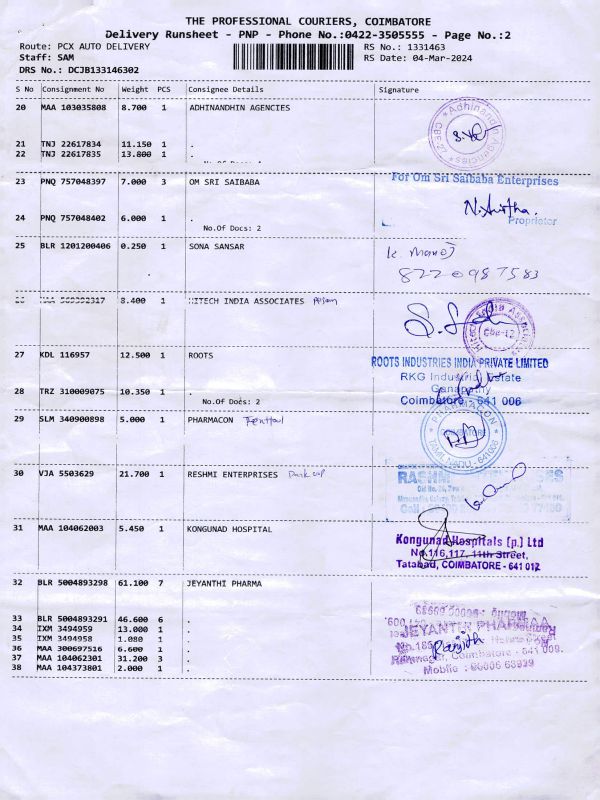 THE PROFESSIONAL COURIERS, COIMBATORE
Delivery Runsheet - PNP - Phone No.:0422-3505555 - Page No.:2
Route: PCX AUTO DELIVERY RS No.: 1331463
Staff: SAM RS Date: 04-Mar-2024
DRS No.: DCJB133146302
S No Consignment No Weight PCS Consignee Details Signature
20 MAA 103035808 8.700 1 ADHINANDHIN AGENCIES
Adhinandin Agencies
21 TNJ 22617834 11.150 1 .
22 TNJ 22617835 13.800 1 .
23 PNQ 757048397 7.000 3 OM SRI SAIBABA
For Om Sri Saibaba Enterprises
Proprietor
24 PNQ 757048402 6.000 1 .
No.Of Docs: 2
25 BLR 1201200406 0.250 1 SONA SANSAR
K. Manoj
8220987583
8.400 1 HITECH INDIA ASSOCIATES
27 KDL 116957 12.500 1 ROOTS
ROOTS INDUSTRIES INDIA PRIVATE LIMITED
RKG Industrial Estate
Ganapathy
Coimbatore - 641 006
28 TRZ 310009075 10.350 1 .
No.Of Docs: 2
29 SLM 340900898 5.000 1 PHARMACON
PHARMACON
COIMBATORE
TAMILNADU - 641006
30 VJA 5503629 21.700 1 RESHMI ENTERPRISES
31 MAA 104062003 5.450 1 KONGUNAD HOSPITAL
Kongunad Hospitals [p.] Ltd
No.116,117, 11th Street,
Tatabad, COIMBATORE - 641 012
32 BLR 5004893298 61.100 7 JEYANTHI PHARMA
33 BLR 5004893291 46.600 6 .
34 IXM 3494959 13.000 1 .
35 IXM 3494958 1.080 1 .
36 MAA 300697516 6.600 1 .
37 MAA 104062301 31.200 3 .
38 MAA 104373801 2.000 1 .
JEYANTHI PHARMAA
Ranjith
Coimbatore - 641 009.